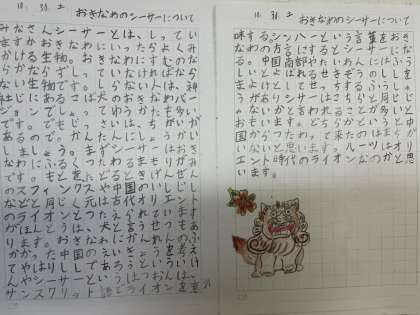 おきなわのシーサーについて
みなさんシーサーとは、しってい
ますかおきなわにいったらよくみ
かける生物。おきなわにすむのな
らかならずしっていなければなら
ない生物です。しらない人は、神
社にあるこま犬のおきなわバー
ジョンでしょってゆうかたも多い
です。でもじっさいはちがいが
あるので、かんたんにしょうかい
しましょう。まずシーサーはおき
なわにふるくつたわるまもりがみ
です。もとをたどるときげんぜん
のスフィンクスや中国のいしじし
などと同じく元は古代オリエント
のライオンとつたえられています
がほんとうは、犬と言うせつもあ
ります。おきなわにかんれんのふ
かかった中国のえいきょうを考え
てやはりししであろうといういけ
んやシーサーというはつおんは、
サンスクリット語でライオンを意
おきなわのシーサーについて
味するシンハーという言葉をおき
なわの方言にするとシーサーにな
る。中国南部やたいわんにはふう
しいとよばれるせきぞうのししを
まよけとしてせっちするふうしゅ
うがありシーサーはこちらと同じ
ないかと言われることが多いと
おもいます。どちらかというと中
国からつたわって来たのはまちが
いないと思います。ルーツはオリ
エント時代のライオンなのかと思
います。